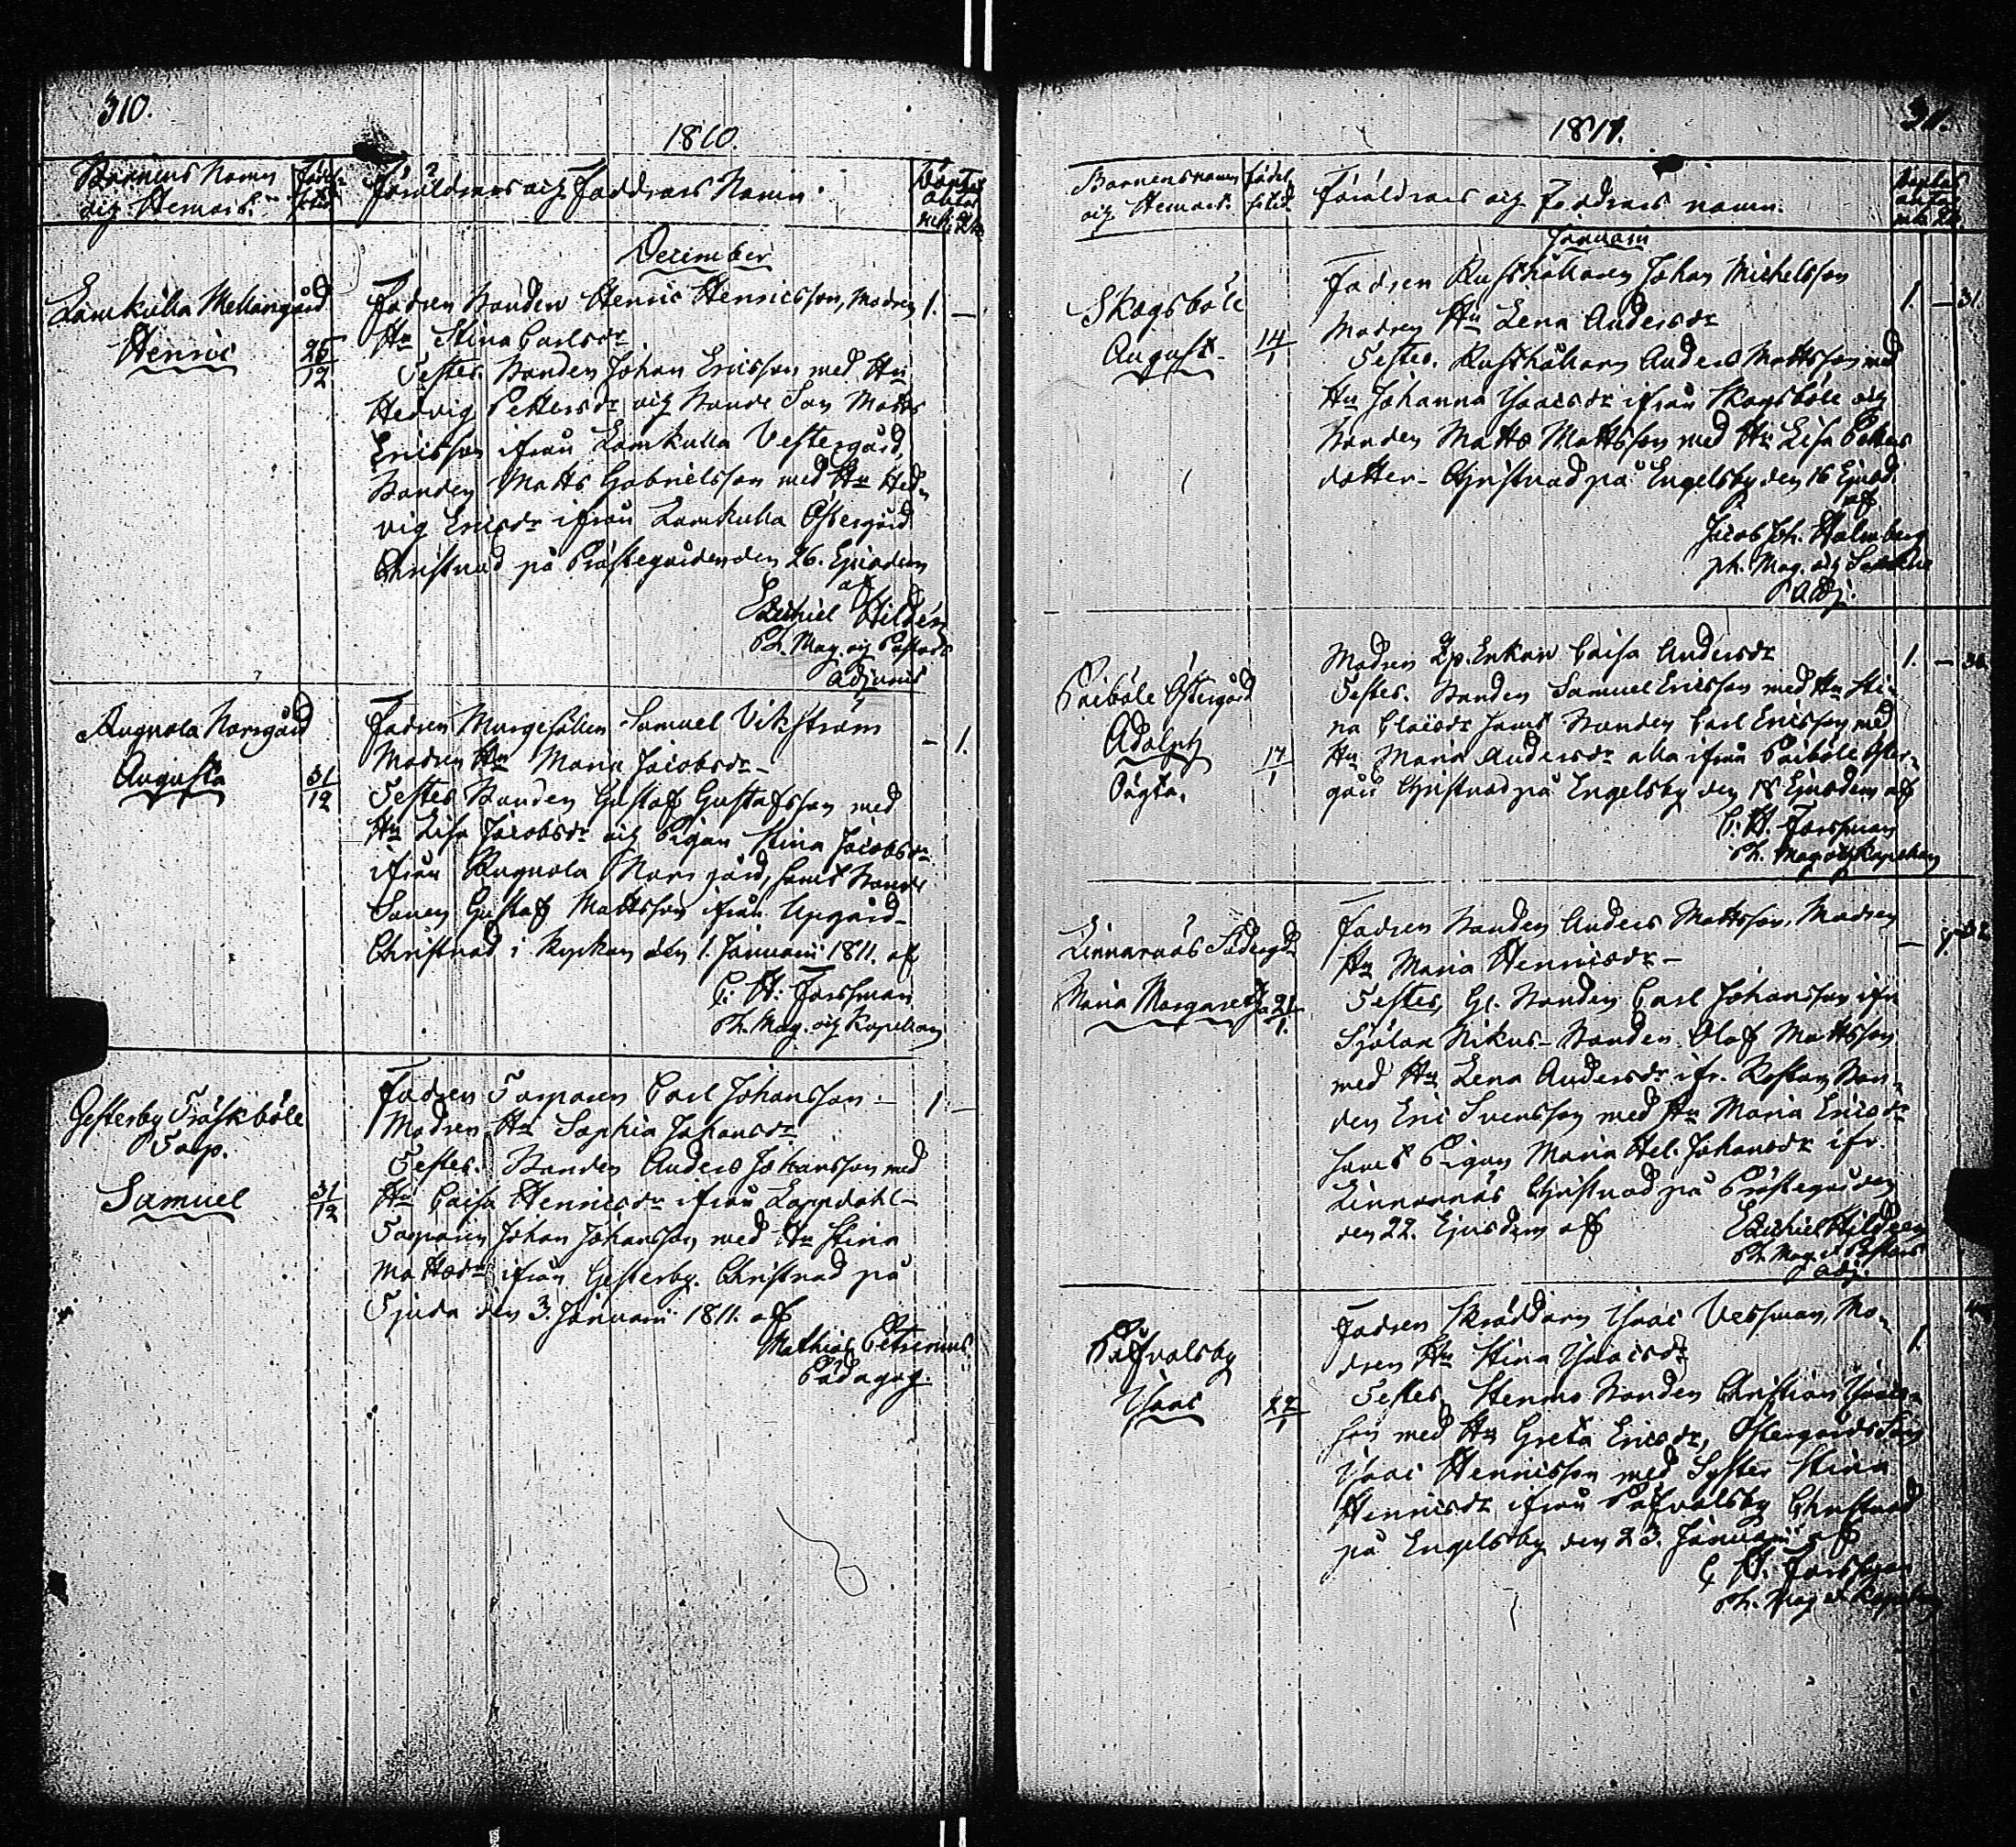 310.
1810.
Barnens Namn
och Hemort.
Födelse
tid
Föräldrars och Faddrars Namn.
December
Lamkulla Mellangård
Henric
25/12
Fadren Bonden Henric Henricsson, Modren
Hu Stina Carlsdr
Testes. Bonden Johan Ericsson med Hu
Hedvig Pettersdr och Bonde Son Matts
Ericsson ifrån Lamkulla Vestergård,
Bonden Matts Gabrielsson med Hu Hed-
vig Ericsdr ifrån Lamkulla Östergård
Christnad på Prästegården den 26. Ejusdem
af
Ezechiel Hildén
Ph. Mag. och Pastors
Adjunct
1. —
Rugnola Norrgård
Augusta
31/12
Fadren Murgesällen Samuel Vikström
Modren Hu Maria Jacobsdr —
Testes Bonden Gustaf Gustafsson med
Hu Lisa Jacobsdr och Pigan Stina Jacobsdr
ifrån Rugnola Norrgård, samt Bonde
Sonen Gustaf Mattsson ifrån Upgård —
Christnad i Kyrkan den 1. Januarii 1811. af
C. H. Forssman
Ph. Mag. och Kapellan
— 1.
Gesterby Träskböle
Torp.
Samuel
31/12
Fadren Torparen Carl Johansson —
Modren Hu Sophia Johansdr
Testes. Bonden Anders Johansson med
Hu Caisa Henricsdr ifrån Lappdahl —
Torparen Johan Johansson med Hu Stina
Mattsdr ifrån Gesterby. Christnad på
Tjuda den 3. Januarii 1811. af
Mathias Petrenius
Pädagog.
1 —
311.
1811.
Barnens namn
och Hemort.
Födelse
tid
Föräldrars och Faddrars namn.
Januarii
Skogsböle
August
14/1
Fadren Rusthållaren Johan Michelsson
Modren Hu Lena Andersdr
Testes. Rusthållarn Anders Mattsson med
Hu Johanna Isaacsdr ifrån Skogsböle och
Bonden Matts Mattsson med Hu Lisa Petters
dotter — Christnad på Engelsby den 16 Ejusd.
af
Jacob Joh. Malmberg
ph. Mag. och
Adj.
1. — 31.
Paiböle Östergård
Adolph
Oägta.
17/1
Modren Enkan Caisa Andersdr
Testes. Bonden Samuel Ericsson med Hu Sti-
na Claesdr samt Bonden Carl Ericsson med
Hu Maria Andersdr alla ifrån Paiböle Öster-
gård Christnad på Engelsby den 18 Ejusdem af
C. H. Forssman
Ph. Mag. och Kapellan
1. —
Linnarnäs Södergd
Maria Margaretha
21/1
Fadren Bonden Anders Mattsson, Modren
Hu Maria Henricsdr —
Testes, Gl. Bonden Carl Johansson ifr
Sjölax Nikus — Bonden Olof Mattsson
med Hu Lena Andersdr ifr. Rostan, Bon-
den Eric Svensson med Hu Maria Ericsdr
samt Pigan Maria Hel. Johansdr ifr.
Linnarnäs Christnad på Prästegården
den 22. Ejusdem af
Ezechiel Hildeen
Ph. Mag. et Pastors
Adj.
Påfvalsby
Isaac
22/1
Fadren Skräddarn Isaac Vessman, Mo-
dren Hu Stina Isaacsdr
Testes, Stenmo Bonden Christian Isaacs-
son med Hu Greta Ericsdr, Östergårds Son
Isaac Henricsson med Syster Stina
Henricsdr ifrån Påfvalsby Christnad
på Engelsby den 23. Januarii af
C. H. Forssman
Ph. Mag et Kapellan
1.